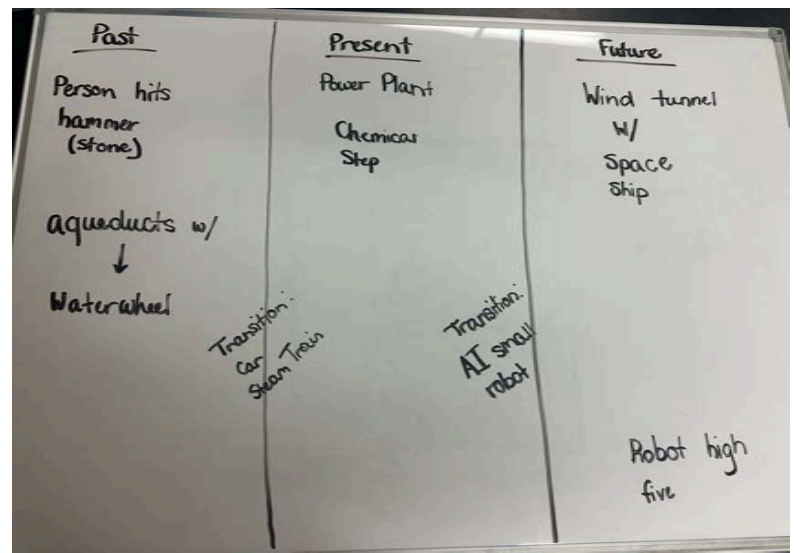 Past
Person hits
hammer
(stone)
aqueducts w/
↓
Waterwheel
Transition:
car
Steam Train
Present
Power Plant
Chemical
Step
Transition:
AI small
robot
Future
Wind tunnel
w/
Space
Ship
Robot high
five